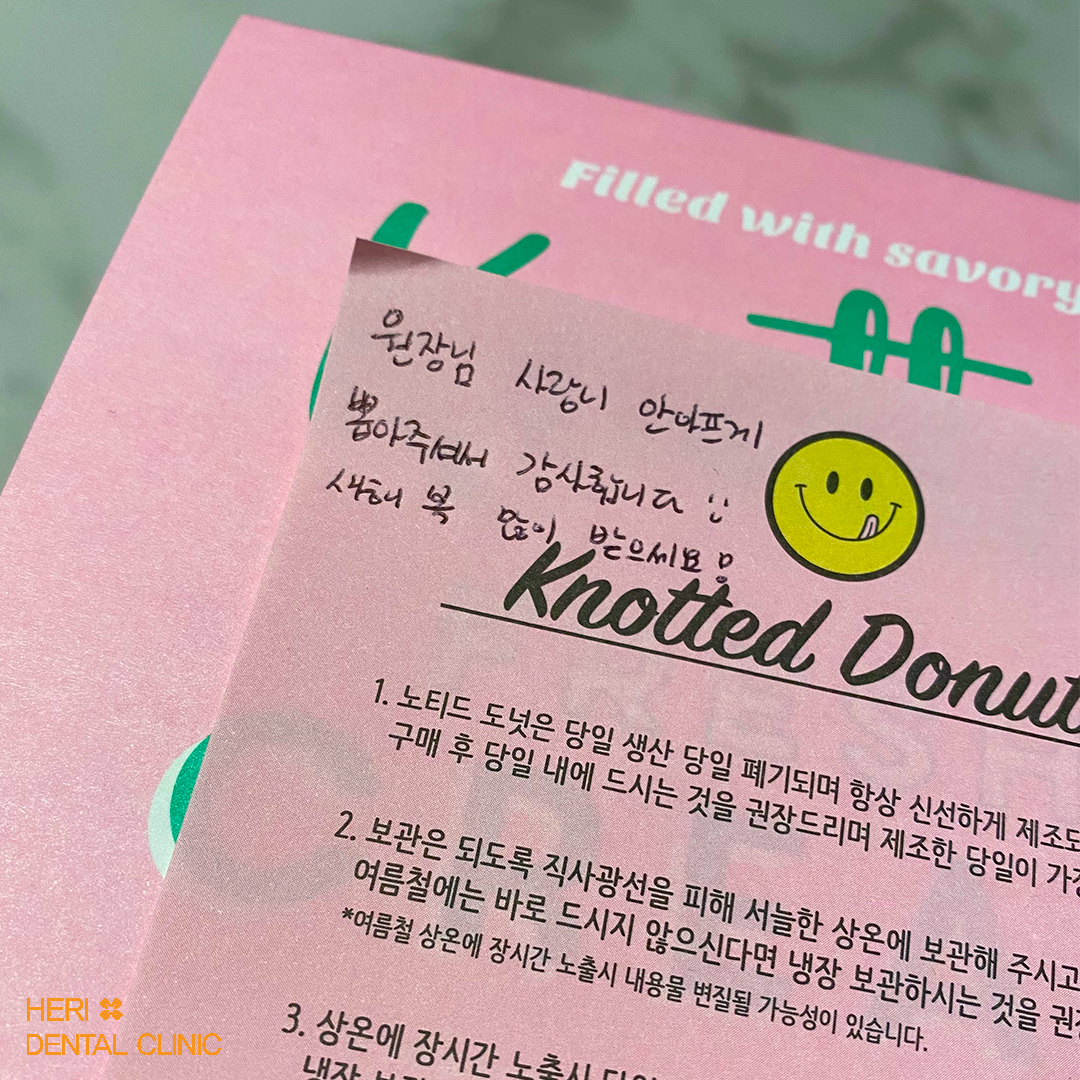 Filled with savory
원장님 사랑니 안아프게
뽑아주셔서 감사합니다 :)
새해 복 많이 받으세요!
Knotted Donut
1. 노티드 도넛은 당일 생산 당일 폐기되며 항상 신선하게 제조되
구매 후 당일 내에 드시는 것을 권장드리며 제조한 당일이 가장
2. 보관은 되도록 직사광선을 피해 서늘한 상온에 보관해 주시고
여름철에는 바로 드시지 않으신다면 냉장 보관하시는 것을 권
*여름철 상온에 장시간 노출시 내용물 변질될 가능성이 있습니다.
3. 상온에 장시간 노출시
냉장
HERI
DENTAL CLINIC